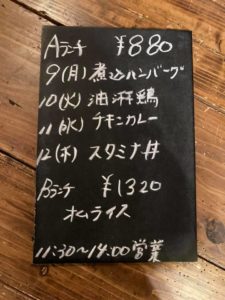 Aランチ ¥880
9(月)煮込ハンバーグ
10(火)油淋鶏
11(水)チキンカレー
12(木)スタミナ丼
Bランチ ¥1320
オムライス
11:30〜14:00営業